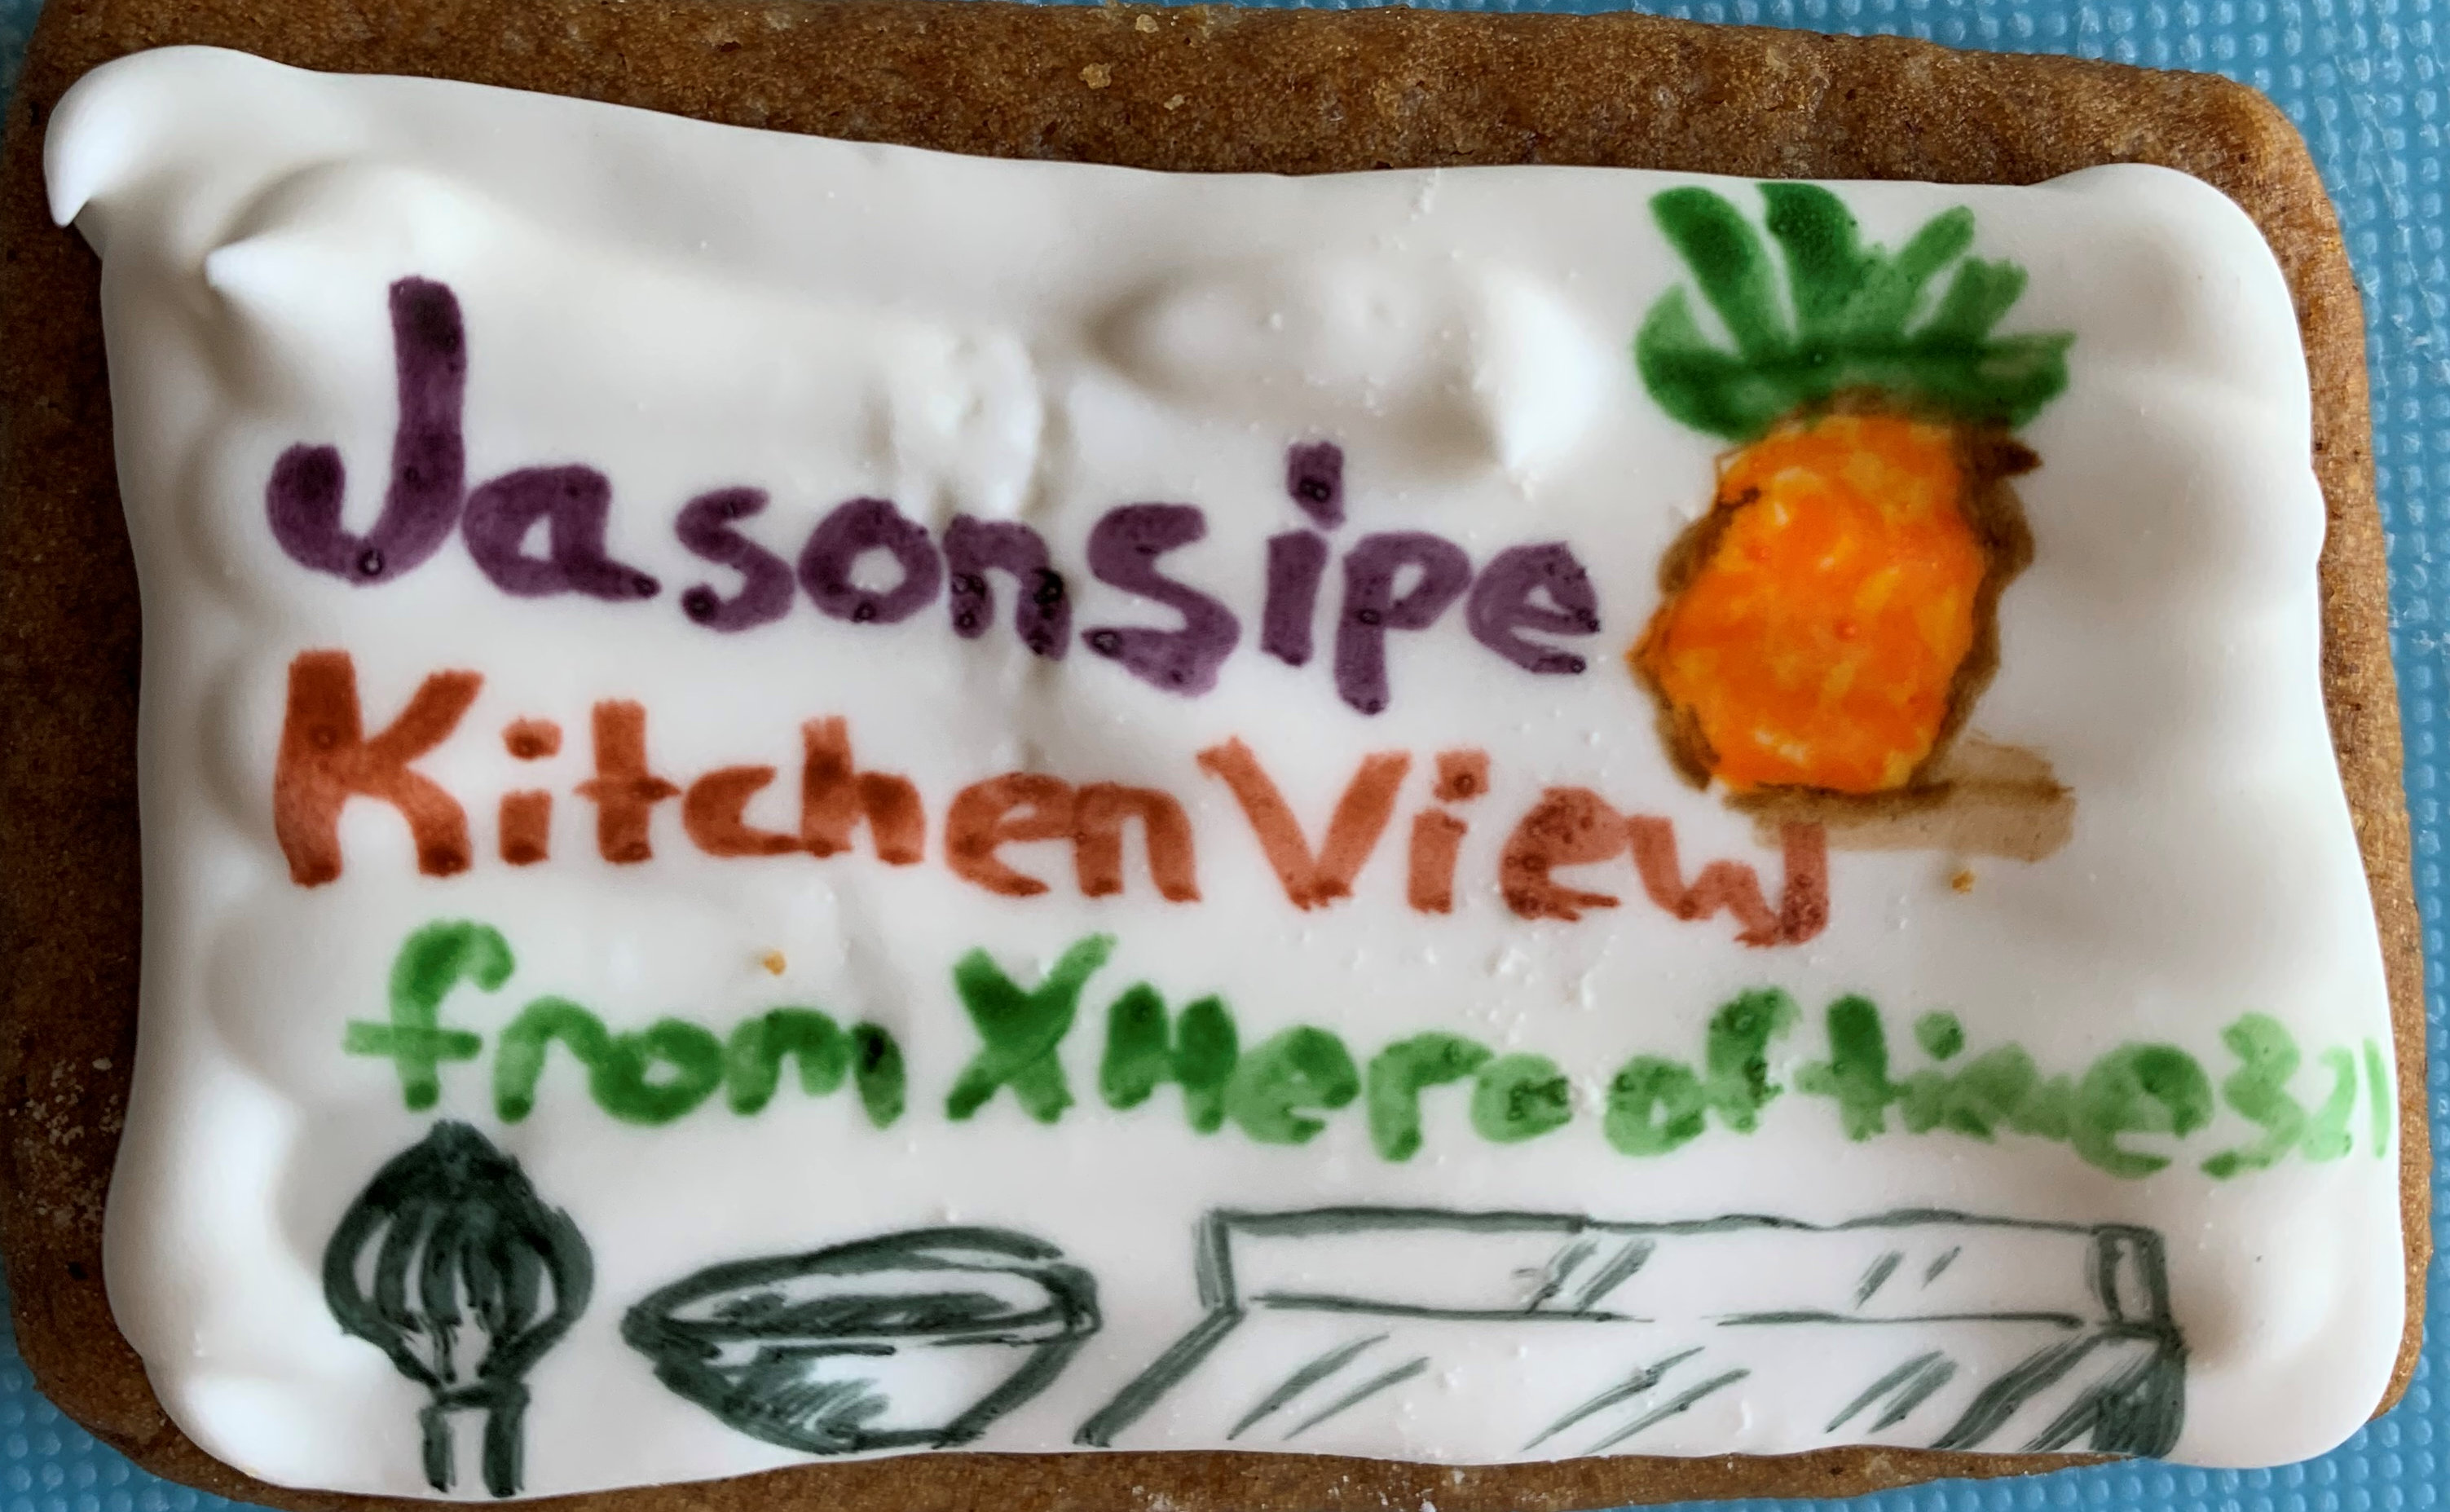 Jasonsipe
KitchenView
from XHerooftime321